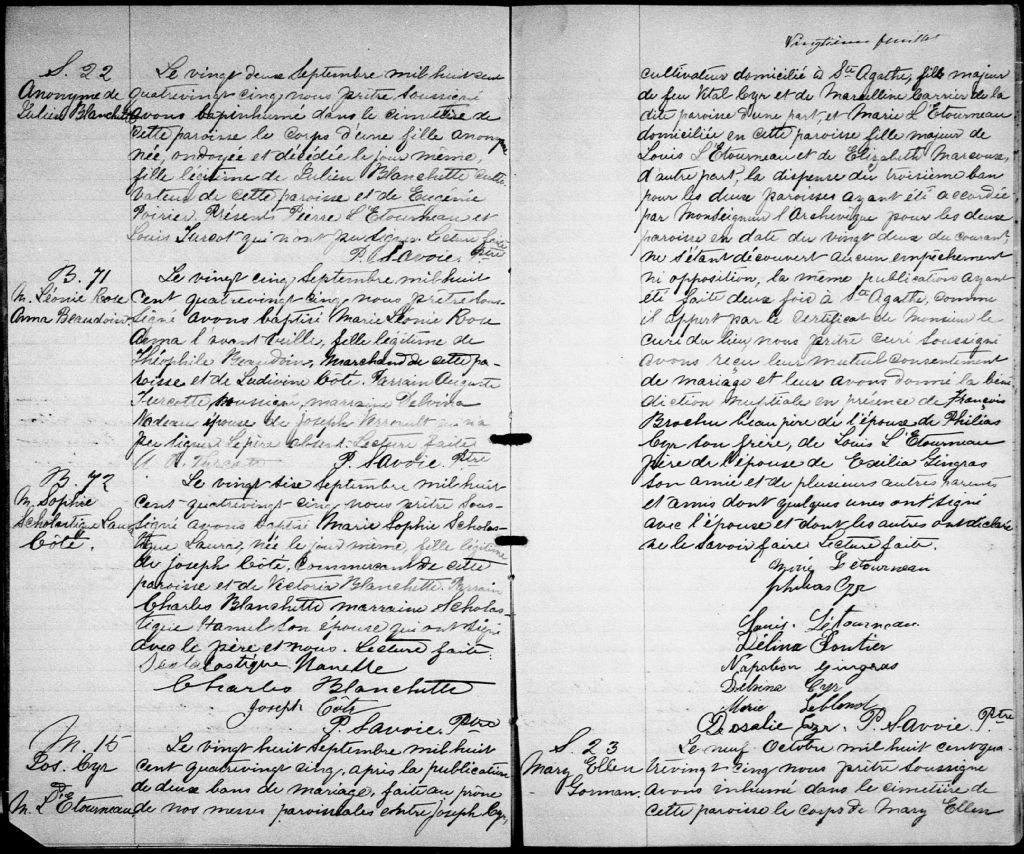 S. 22
Anonyme de
Julien Blanchette
Le vingt deux Septembre mil huit cent
quatrevingt cinq, nous prêtre soussigné
avons inhumé dans le cimetière de
cette paroisse le corps d'une fille anony
née, ondoyée et décédée le jour même,
fille légitime de Julien Blanchette culti-
vateur de cette paroisse et de Eugénie
Poirier. Présents Pierre L'Etourneau et
Louis Turcot qui n'ont pu signer. Lecture faite
P. Savoie, Ptre
B. 71
M. Léonie Rose
Anna Beaudoin
Le vingt cinq Septembre mil huit
cent quatrevingt cinq, nous prêtre sous-
signé avons baptisé Marie Léonie Rose
Anna l'avant veille, fille légitime de
Théophile Beaudoin, Marchand de cette pa-
roisse et de Ludivine Côté. Parrain Auguste
Turcotte, soussigné, marraine
Nadeau épouse de Joseph Verrault qui n'a
pu signer. Le père absent. Lecture faite
Turcotte P. Savoie. Ptre
B. 72
M. Sophie
Scholastique Laura
Côté.
Le vingt sixe Septembre mil huit
cent quatrevingt cinq, nous prêtre sous-
signé avons baptisé Marie Sophie Scholas-
tique Laura, née le jour même, fille légitime
de Joseph Côté, Commerçant de cette
paroisse et de Victoria Blanchette. Parrain
Charles Blanchette marraine Scholas-
tique Hamel son épouse qui ont signé
avec le père et nous. Lecture faite.
Charles Blanchette
Joseph Côté
P. Savoie. Ptre
M. 15
Jos. Cyr
&
M. L'Etourneau
Le vingt huit Septembre mil huit
cent quatrevingt cinq, après la publication
de deux bans de mariage, faite au prône
de nos messes paroissiales entre Joseph Cyr,
Vingtième feuillet
cultivateur domicilié à Ste Agathe, fils majeur
de feu Vital Cyr et de Marcelline Carrier de la
dite paroisse d'une part, et Marie L'Etourneau
domiciliée en cette paroisse fille majeur de
Louis L'Etourneau et de Elizabeth Marcoux,
d'autre part, la dispense du troisième ban
pour les deux paroisses ayant été accordée
par Monseigneur l'Archevêque pour les deux
paroisse en date du vingt deux du courant,
ne s'étant découvert aucun empêchement
ni opposition, la même publication ayant
été faite deux fois à Ste Agathe, comme
il appert par le certificat de Monsieur le
curé du lieu, nous prêtre curé soussigné
avons reçu leur mutuel consentement
de mariage et leur avons donné la béné
diction nuptiale en présence de François
Brochu beau père de l'épouse de Philias
Cyr son frère, de Louis L'Etourneau
père de l'épouse de Exilia Gingras
son amie et de plusieurs autres parents
et amis dont quelques unes ont signé
avec l'épouse et dont les autres ont déclaré
ne le savoir faire. Lecture faite.
Letourneau
philias Cyr
Louis. Létourneau
Délina Cloutier
Napoléon Gingras
Délvina Cyr
Marie Leblond
Rosalie Cyr. P. Savoie. Ptre
S. 23
Mary Ellen
Gorman.
Le neuf Octobre mil huit cent qua-
trevingt-cinq nous prêtre soussigné
avons inhumé dans le cimetière de
cette paroisse le corps de Mary Ellen